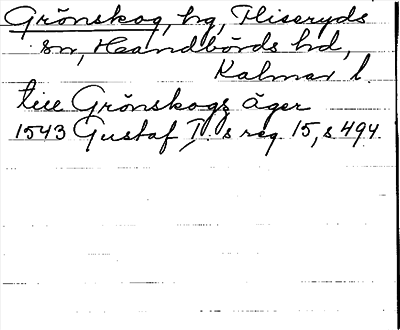 Grönskog, hg, Fliseryds
sn, Handbörds hd,
Kalmar l.
till Grönskogs äger
1543 Gustaf I:s reg 15, s 494.